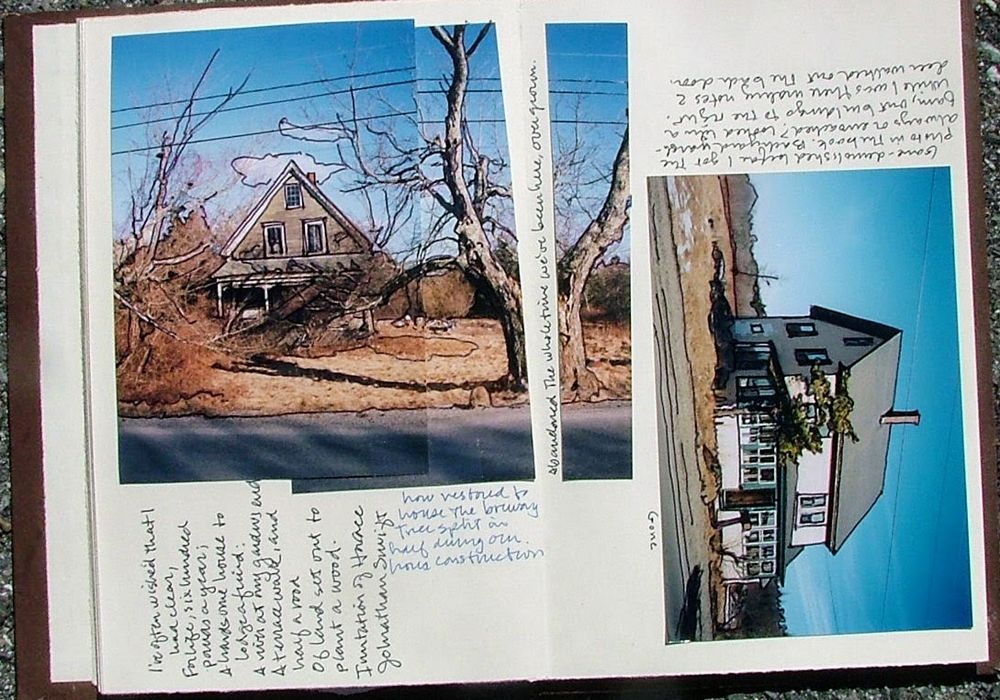 I've often wished that I
had clear,
For life, six hundred
pounds a year;
A handsome house to
lodge a friend.
A river at my garden's end
A terrace walk, and
half a rood
Of land set out to
plant a wood.
Imitation of Horace
Jonathan Swift
now restored to
house the
tree split in
half during our
house construction
Abandoned the whole time we've been here, overgrown.
Gone
Gone - demolished before I got the
photo in the book. Backyard yard-
always or overgrazed? looked like a
farm, out buildings to the right.
While I was there making notes 2
deer walked out the back door.